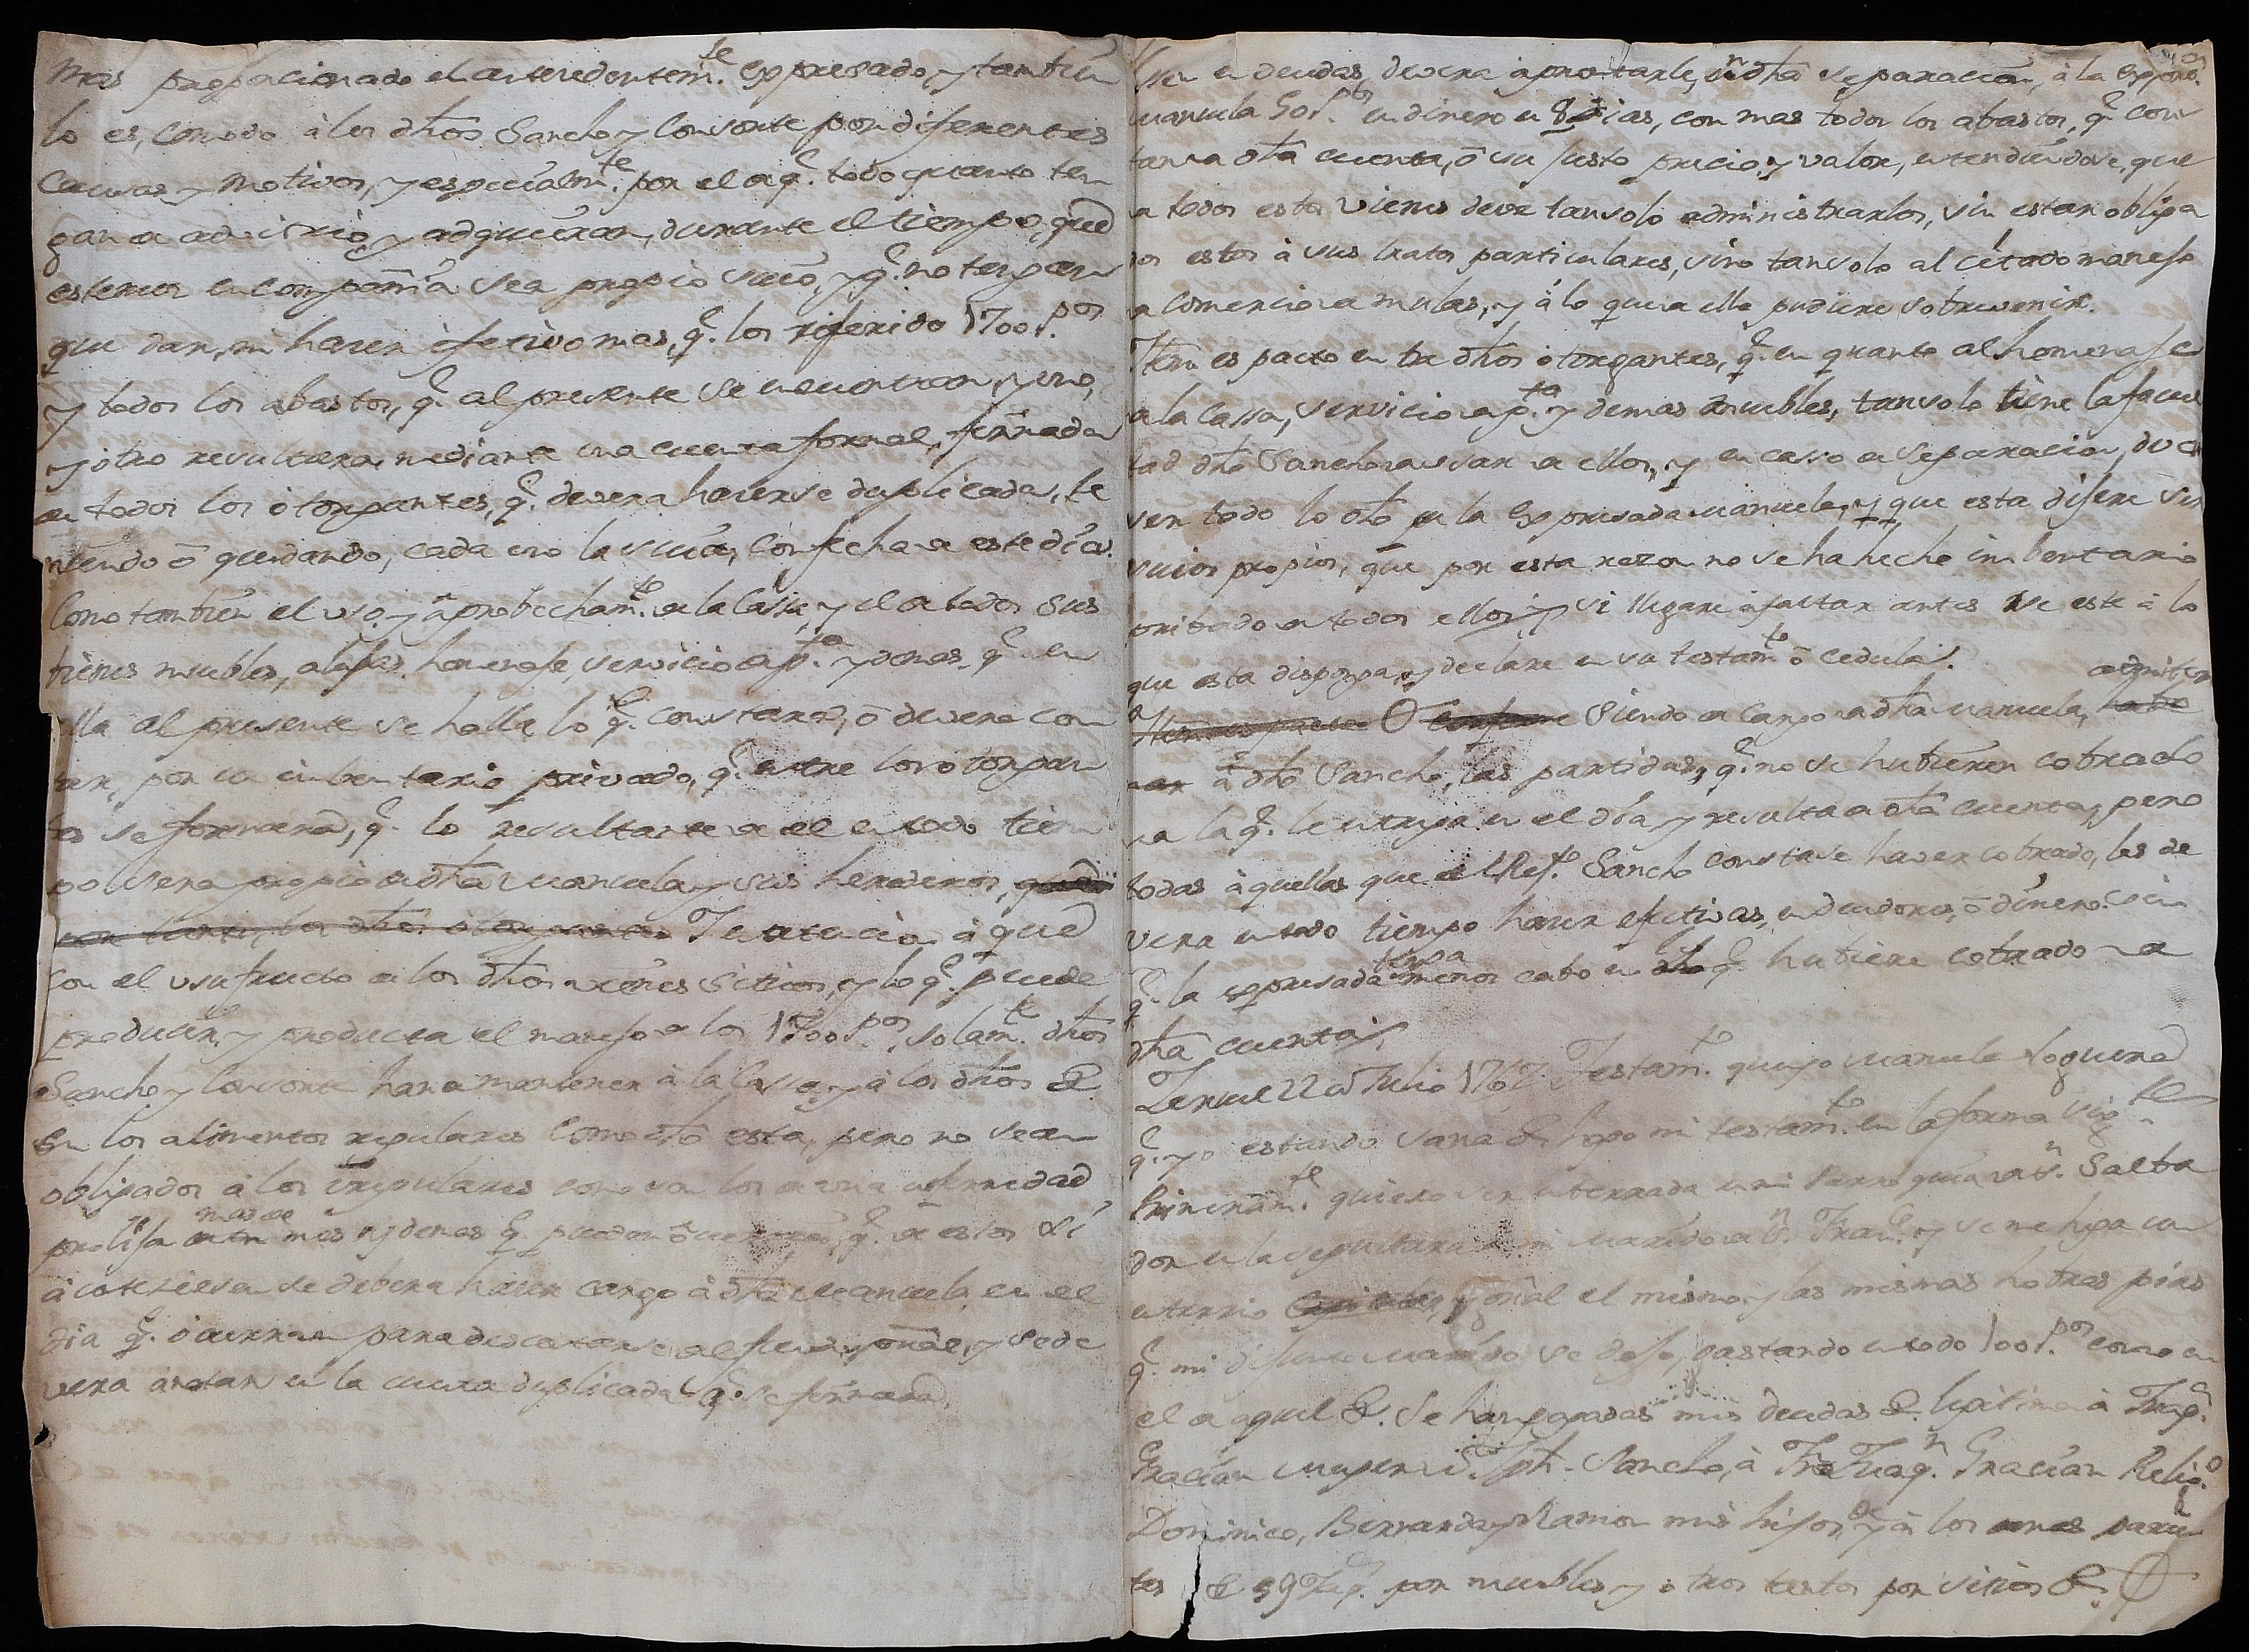 mas proporcionado el antecedentem.te expresado, y tambien
lo es, comodo à los dhos Sancho y Consorte por diferentes
Causas y motivos, y especialm.te por el de q.e todo quanto ten
gan de adbitrio, y adquieran, durante el tiempo, que
estemos en compañia sea propio suio, y q.e no tengan
que dar, ni hacer efetivo mas, q.e los referido 1700 p.os
y todos los abastos, q.e al presente se encontraran, y uno,
y otro resultara, mediante una cuenta formal, firmada
de todos los otorgantes, q.e devera hacerse duplicada, te
niendo ô quedando, cada uno la suia, con fecha de este dia.
Como tambien el uso y aprobecham.to de la Casa, y el de todos sus
bienes muebles, alajas, homenaje, servicio de p.ta y demas q.e en
ella al presente se halla, lo q.e constara, ô devera cons
tar, por un imbentario privado, q.e entre los otorgan
tes se formara, q.e lo resultante de el en todo tiem
po sera propio de dha Manuela y sus herederos, que
por tanto, los dhos otorgantes Y en atencion à que
con el usufructo de los dhos vienes sitios, y lo q.e puede
producir, y producia el manejo de los 1700 p.os solam.te dhos
Sancho y Consorte han de mantener à la Casa, y à los dhos &
en los alimentos regulares como dho esta, pero no sean
obligados à los irregulares como son los de una enfermedad
prolija de mas de un mes y demas q.e puedan q.e de estos si
acontecieren se debera hacer cargo à dha Manuela en el
dia q.e ocurran para descontarse y sede
vera anotar en la cuenta duplicada q.e se firmara.
sen en deudas, devera aprontarle, en dha separacion, à la expres.da
Manuela 50 p.os en dinero en 8 dias, con mas todos los abastos, q.e cons
tan en dha cuenta, ô su justo precio, y valor, entendiendose, que
a todos estos vienes deve tansolo administrarlos, sin estar obliga
dos estos à sus tratos particulares, sino tansolo al citado manejo
de comercio de mulas, y à lo que a ello pudiere sobrevenir.
Item es pacto entre dhos otorgantes, q.e en quanto al homenaje
de la Cassa, servicio de p.ta y demas muebles, tansolo tiene la facul
tad dho Sancho de usar de ellos, y en caso de separacion, de
ser todo lo dho de la expresada Manuela, y que esta dijere ser
suios propios, que por esta razon no se ha hecho imbentario
pribado de todos ellos, y si llegare à faltar antes se este à lo
que esta disponga, y declare en su testam.to ô cedula.
Item es pacto O conforme Siendo de cargo de dha Manuela, admitir
à dho Sancho, las partidas, q.e no se hubieren cobrado
de la q.e le entrega en el dia y resulta de dha cuenta, pero
todas aquellas que el Ref.do Sancho constase haver cobrado, las de
vera en todo tiempo hacer efectivas, en deudores, ô dinero sin
q.e la expresada tenga menos cabo en lo q.e hubiere cobrado de
dha cuenta.
Teruel 22 de Julio 1767 Testam.to que yo Manuela Noguera
q.e yo estando sana & hago mi testam.to en la forma sig.te
Primeram.te quiero ser enterrada en mi Parroquia de S.n Salba
dor en la sepultura de mi marido de S.n Fran.co y se me haga un
entierro Capitular, general el mismo y las mismas hobras pias
q.e mi difunto marido se dejo, gastando en todo 100 p.os como en
el de aquel &. Se han pagadas mis deudas &. legitima à Juaq.a
Gracian muger de Jph. Sancho, à Fr. Juaq.n Gracian Relig.o
Dominico, Bernarda y Ramon mis hijos, y à los demas parien
tes & 5 Jaq. por muebles y otros tantos por sitios &.